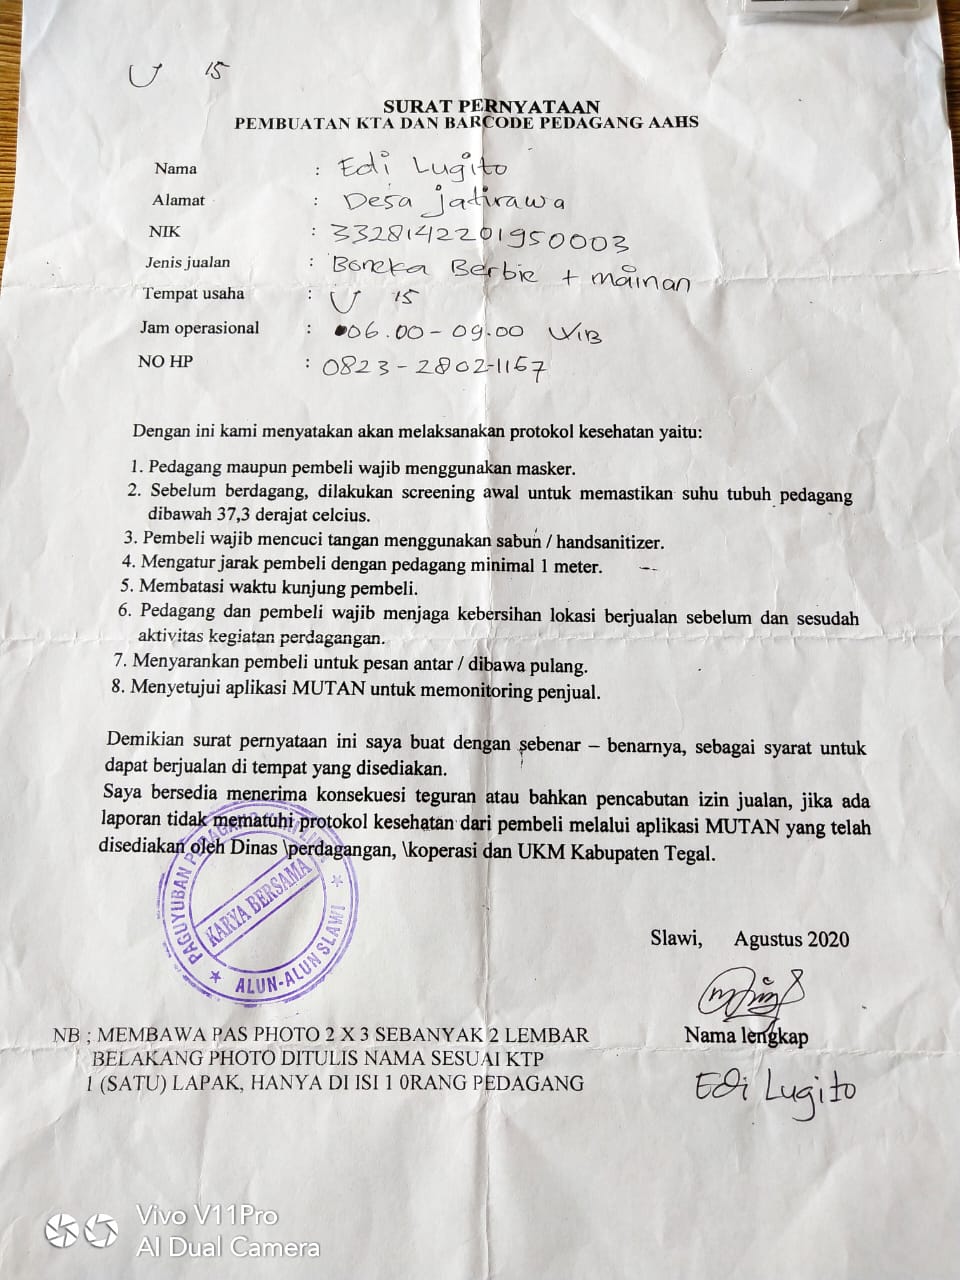 U 15
SURAT PERNYATAAN
PEMBUATAN KTA DAN BARCODE PEDAGANG AAHS
Nama : Edi Lugito
Alamat : Desa jatirawa
NIK : 3328142201950003
Jenis jualan : Boneka Berbie + mainan
Tempat usaha : U 15
Jam operasional : 06.00 - 09.00 WIB
NO HP : 0823-2802-1167
Dengan ini kami menyatakan akan melaksanakan protokol kesehatan yaitu:
1. Pedagang maupun pembeli wajib menggunakan masker.
2. Sebelum berdagang, dilakukan screening awal untuk memastikan suhu tubuh pedagang
dibawah 37,3 derajat celcius.
3. Pembeli wajib mencuci tangan menggunakan sabun / handsanitizer.
4. Mengatur jarak pembeli dengan pedagang minimal 1 meter.
5. Membatasi waktu kunjung pembeli.
6. Pedagang dan pembeli wajib menjaga kebersihan lokasi berjualan sebelum dan sesudah
aktivitas kegiatan perdagangan.
7. Menyarankan pembeli untuk pesan antar / dibawa pulang.
8. Menyetujui aplikasi MUTAN untuk memonitoring penjual.
Demikian surat pernyataan ini saya buat dengan sebenar – benarnya, sebagai syarat untuk
dapat berjualan di tempat yang disediakan.
Saya bersedia menerima konsekuesi teguran atau bahkan pencabutan izin jualan, jika ada
laporan tidak mematuhi protokol kesehatan dari pembeli melalui aplikasi MUTAN yang telah
disediakan oleh Dinas \perdagangan, \koperasi dan UKM Kabupaten Tegal.
PAGUYUBAN PEDAGANG
KARYA BERSAMA
ALUN-ALUN SLAWI
Slawi, Agustus 2020
Nama lengkap
Edi Lugito
NB ; MEMBAWA PAS PHOTO 2 X 3 SEBANYAK 2 LEMBAR
BELAKANG PHOTO DITULIS NAMA SESUAI KTP
1 (SATU) LAPAK, HANYA DI ISI 1 0RANG PEDAGANG
Vivo V11Pro
AI Dual Camera